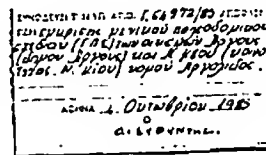 ΣΥΝΟΔΕΥΕΙ ΑΠΟΦ. 64972/83 ΑΠΟΦΑΣΗ
εγκρίσεως γενικού πολεοδομικού
σχεδίου (ΓΠΣ) των οικισμών Άργους
(δήμου Άργους) και Ν. Κίου (κοινό-
τητας Ν. Κίου) νομού Αργολίδος.
ΑΘΗΝΑ 4 Οκτωβρίου 1985
Ο
ΔΙΕΥΘΥΝΤΗΣ